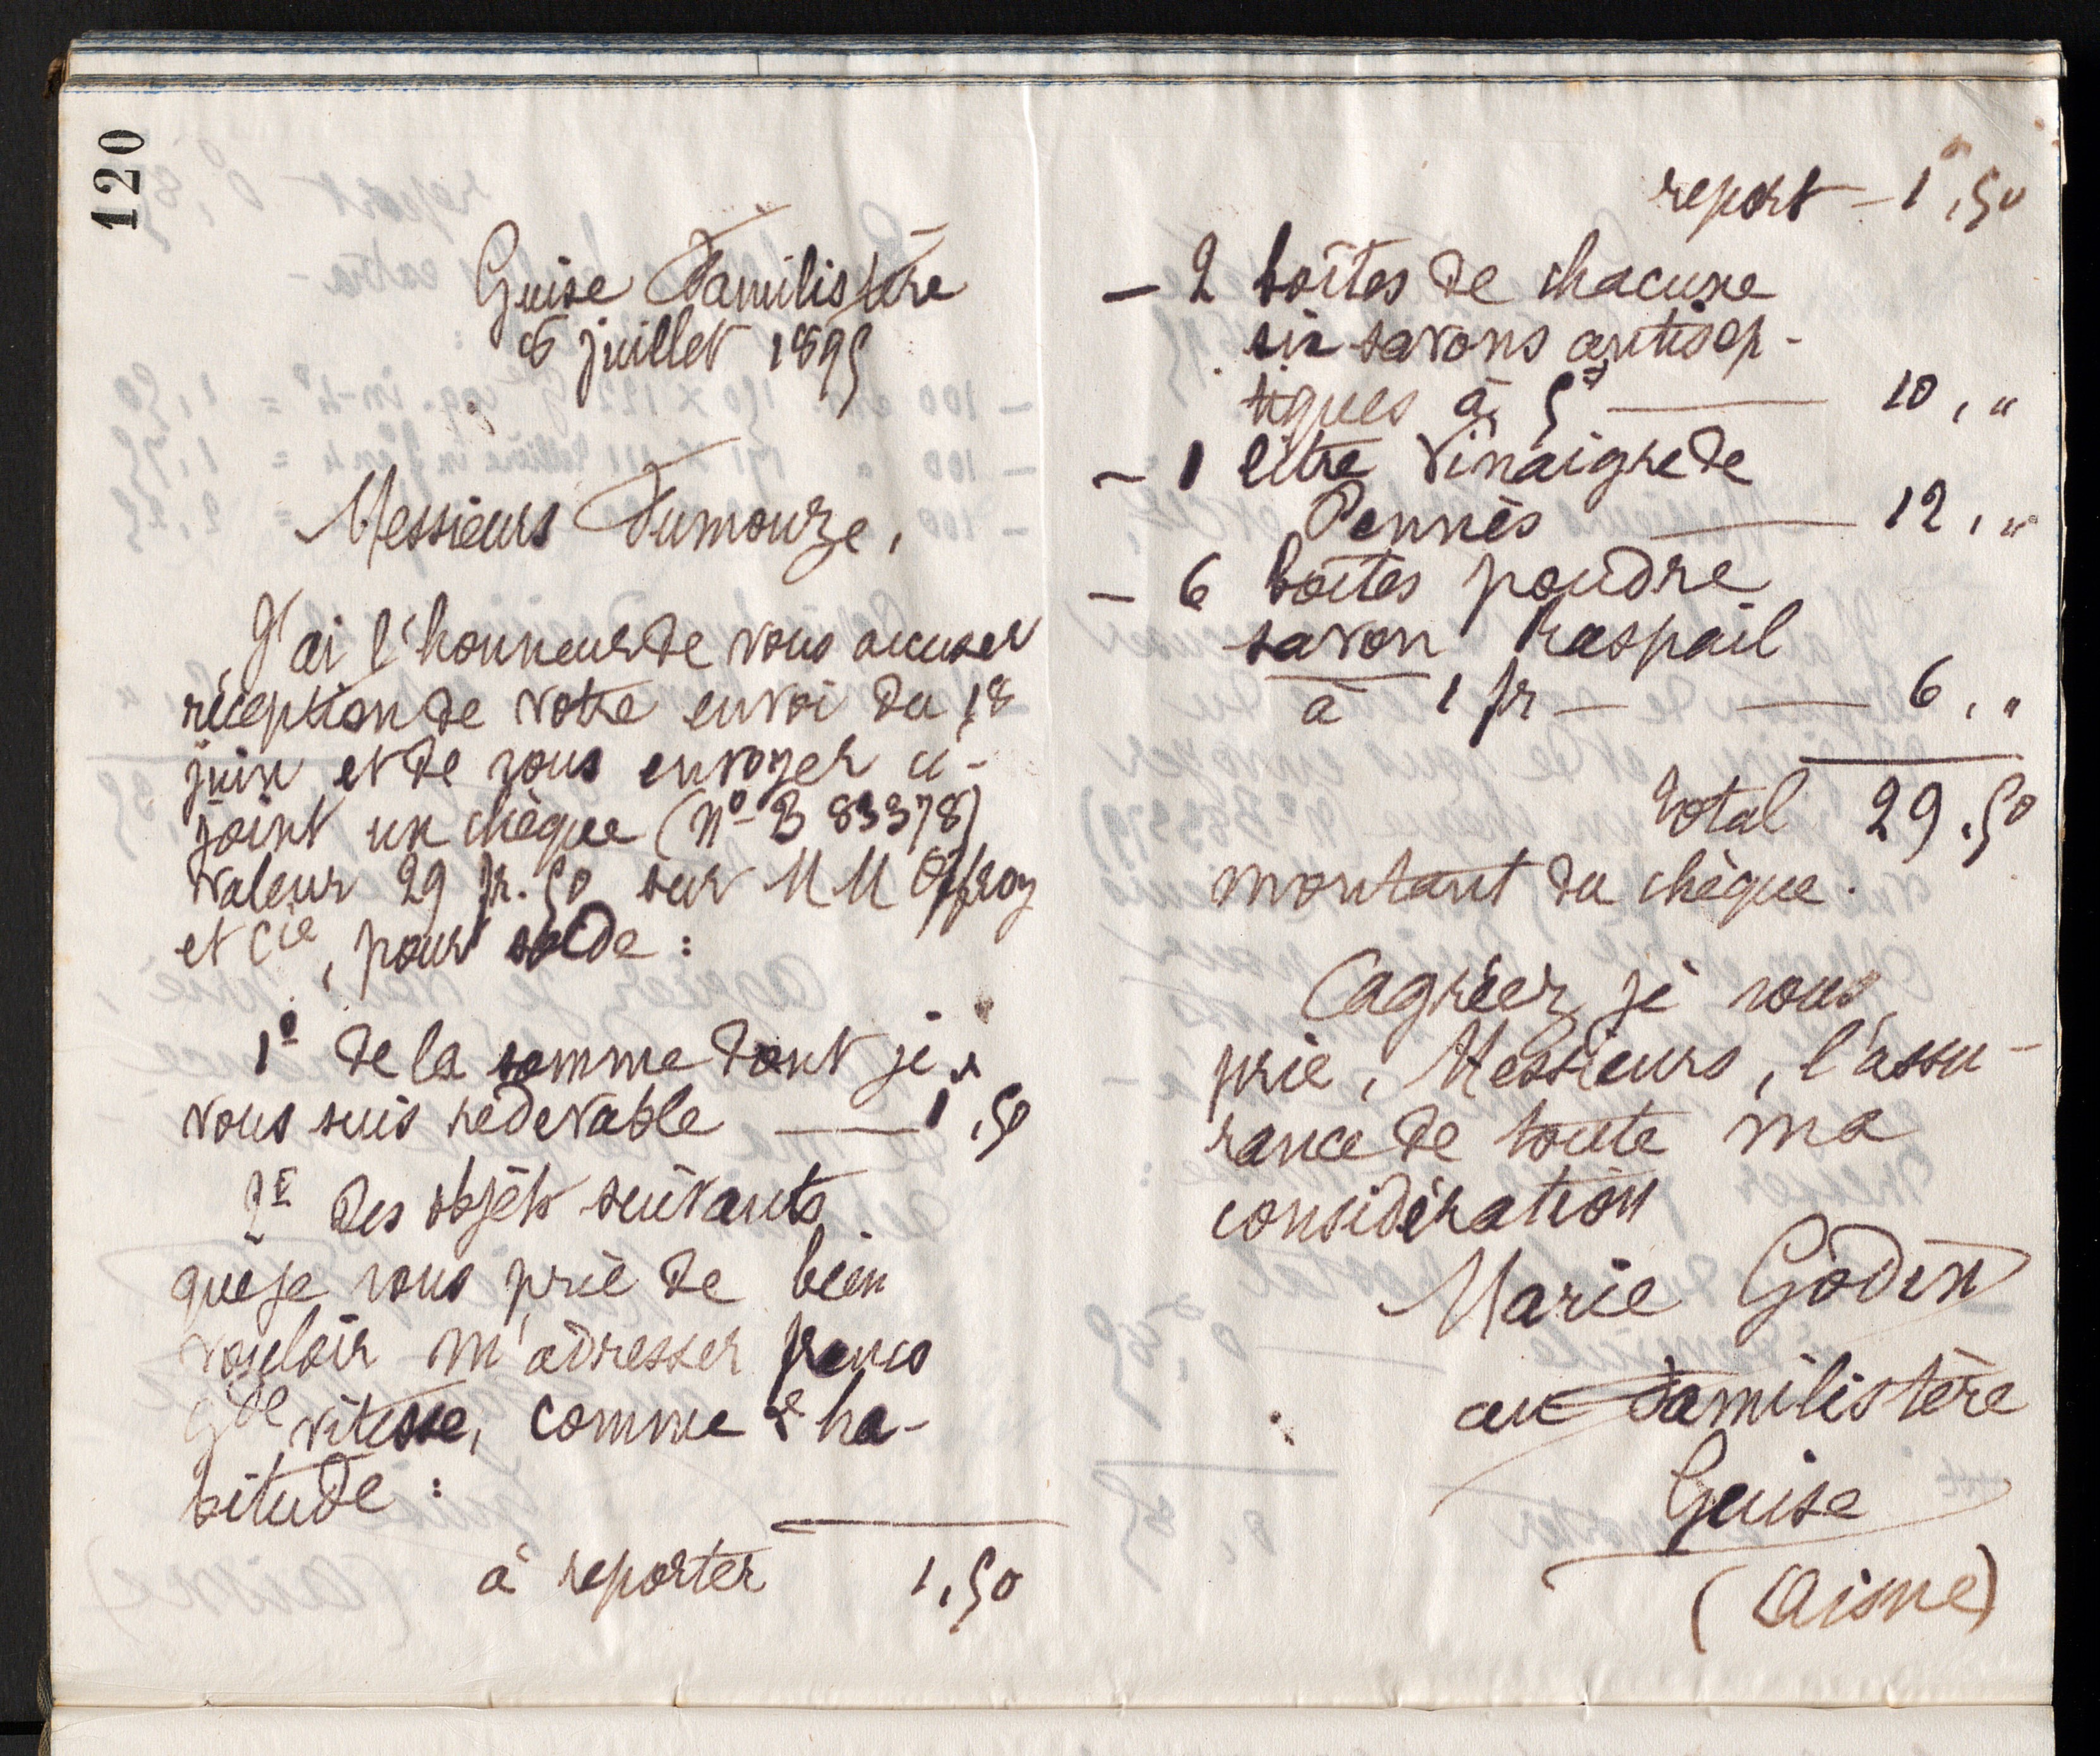 120
Guise Familistère
6 juillet 1895
Messieurs Fumouze,
J'ai l'honneur de vous accuser
réception de votre envoi du 18
juin et de vous envoyer ci-
joint un chèque (N° B 83378)
valeur 29 fr. 50 sur MM Offroy
et Cie, pour solde :
1° de la somme dont je
vous suis redevable — 1,50
2° des objets suivants
que je vous prie de bien
vouloir m'adresser franco
gde vitesse, comme d'ha-
bitude :
à reporter 1,50
report — 1f,50
— 2 boîtes de chacune
six savons antisep-
tiques à 5f — 10,"
— 1 litre Vinaigre de
Pennès — 12,"
— 6 boîtes poudre
savon Raspail
à 1 fr — — 6,"
Total 29.50
montant du chèque.
Agréez, je vous
prie, Messieurs, l'assu-
rance de toute ma
considération
Marie Godin
au Familistère
Guise
(Aisne)